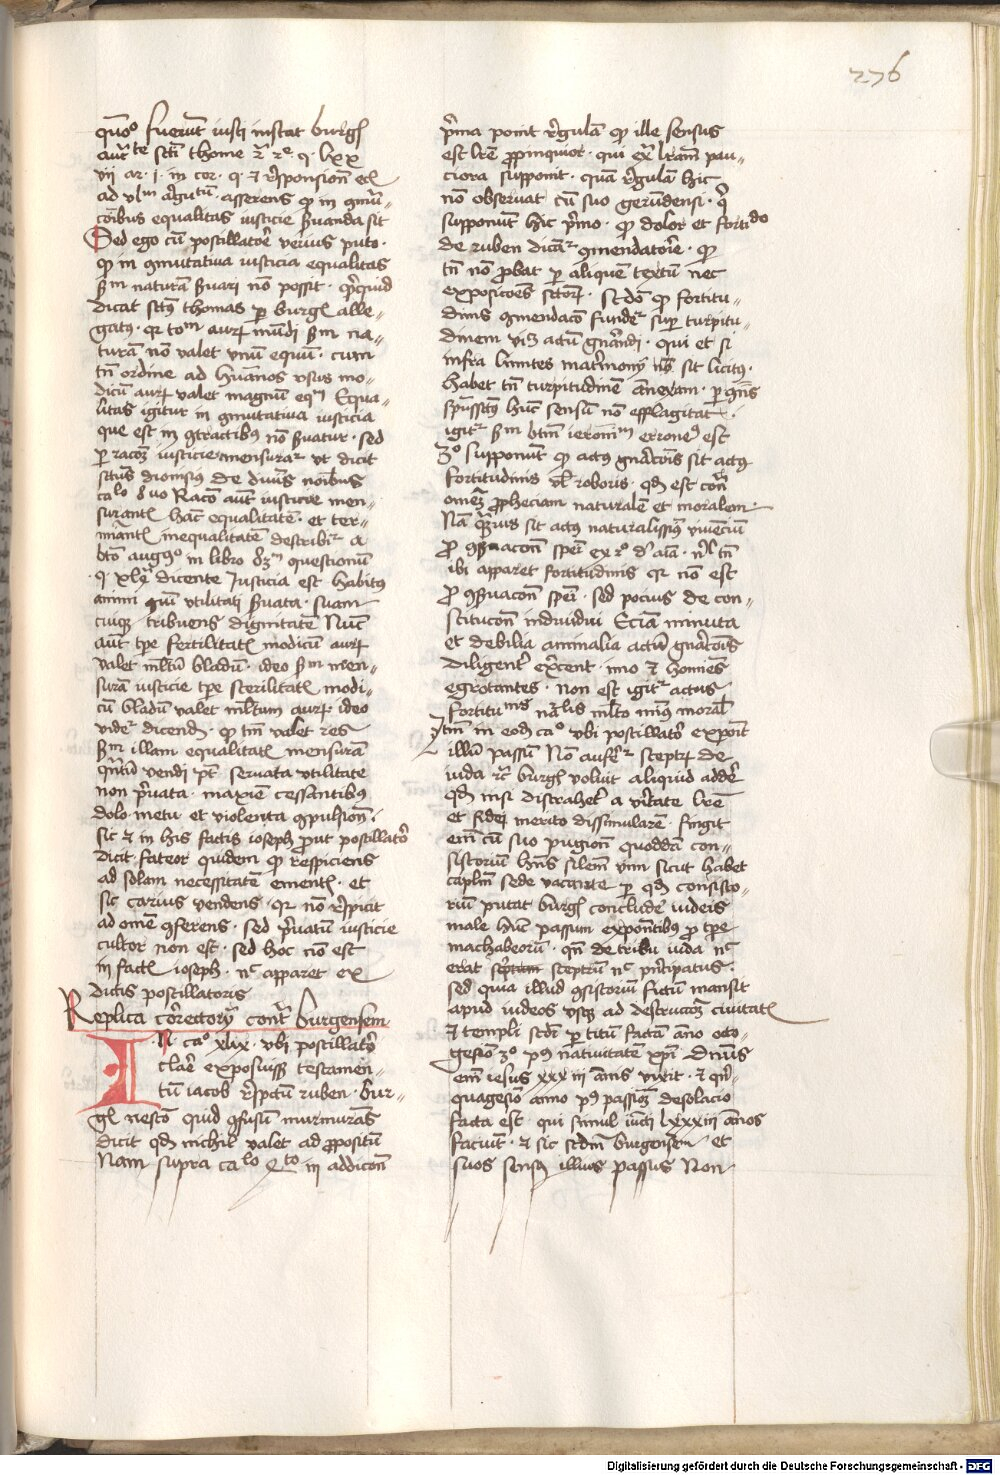 276
quomo fuerunt iusti instat burgen
auctte sancti thome 2a 2e q lxx
vii ar i in cor q et responsionem
ad vltm argutum asserens quod in commuta
cionibus equalitas iusticie seruanda sit
Sed ego cum postillatore verius puto
quod in commutatiua iusticia equalitas
scdm naturam seruari non possit
dicat sanctus thomas per burgen alle
gatus quia totum aurum mundi scdm na
turam non valet vnum equum cum
tamen ordine ad humanos vsus mo
dicum aurum valet magnum equum Equa
litas igitur in commutatiua iusticia
que est in contractibus non seruatur sed
per racionem iusticie mensuratur vt dicit
sanctus dionisius de diuinis nominibus
calo Racionem autem iusticie men
surantem hanc equalitatem et ter
minantem inequalitatem describit
beatus augus in libro questionum
q dicente Iusticia est habitus
animi utilitati seruata suam
cuique tribuens dignitatem Nunc
autem tempore fertilitatis modicum aurum
valet multum bladum ideo scdm men
suram iusticie tempore sterilitatis modi
cum bladum valet multum aurum ideo
videtur dicendum quod tantum valet res
scdm illam equalitatem mensuram
quantum vendi potest seruata vtilitate
non priuata maxime cessantibus
dolo metu et violenta compulsione
sic et in his factis ioseph prout postillator
dicit fateor quidem quod respiciens
ad solam necessitatem ementis et
sic carius vendens quia non respicit
ad omnem conferens sed priuatum iusticie
cultor non est sed hoc non est
in factis ioseph nec apparet ex
dictis postillatoris
Replica correctorii contra burgensem
In cao xlix vbi postillator
clare exposuisset testamen
tum iacob respectum ruben bur
gen nescio quid confusum murmurans
dicit quod nichil valet ad propositum
Nam supra calo in addicione
prima ponit regulam quod ille sensus
est litere propinquior qui extra literam pau
ciora supponit quam regulam hic
non obseruat cum suo gerundensi
supponunt hic primo quod dolor et fortido
de ruben dicantur commendatorie quod
tamen non probat per aliquem textum nec
exposiciones sanctorum Secundo quod fortitu
dinis commendacio fundetur super turpitu
dinem vi3 actum generandi qui et si
infra limites matrimonij sit licitus
habet tamen turpitudinem annexam
spiritus sanctus hunc sensum non efflagitat
igitur scdm beatum ieronimum erroneus est
3o supponunt quod actus generacionis sit actus
fortitudinis vel roboris quod est contra
omnem propheciam naturalem et moralem
Nam quamuis sit actus naturalissimus viuencium
pro conseruacione speciei
ibi apparet fortitudinis quia non est
pro conseruacione speciei sed pocius de con
stitucione indiuidui Eciam minuta
et debilia animalia actum generacionis
diligenter exercent imo et homines
egrotantes non est igitur actus
fortitudinis naturalis multo minus moralis
Item in eodem cao vbi postillator exponit
illum passum Non auferetur sceptrum de
iuda etc burgen voluit aliquid addere
quod nisi distrahetur a veritate litere
et fidei merito dissimularem fingit
enim cum suo pugione quoddam con
sistorium habens similem vim sicut habet
capitulum sede vacante per quod consisto
rium putat burgen concludere iudeis
male hunc passum exponentibus pro tempore
machabeorum quando de tribu iuda non
erat sceptrum nec principatus
sed quia illud consistorium fictum mansit
apud iudeos vsque ad destructionem ciuitatis
et templi scilicet per titum factam anno octo
gesimo 3o post natiuitatem xpi Dominus
enim iesus xxxiii annis vixit et
quagesimo anno post passionem desolacio
facta est qui simul iuncti lxxxiii annos
faciunt et sic secundum burgensem et
suos sensus illius passus Non
Digitalisierung gefördert durch die Deutsche Forschungsgemeinschaft - DFG